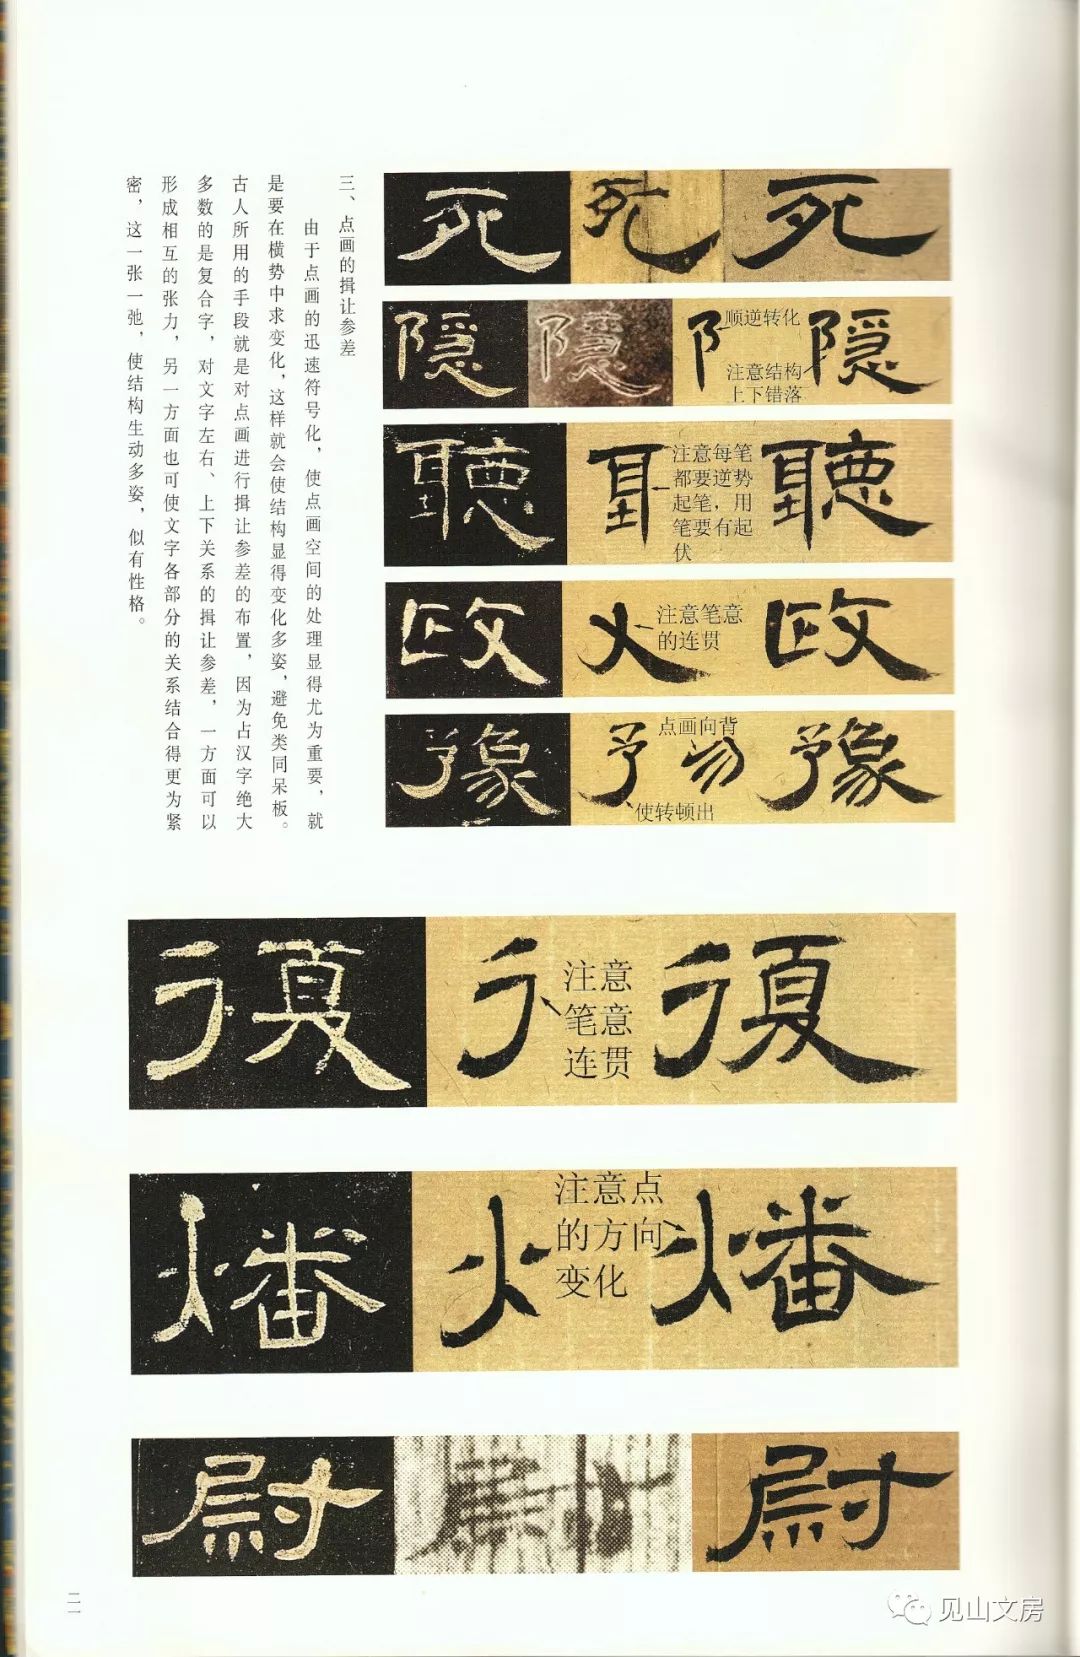 三、点画的揖让参差
由于点画的迅速符号化，使点画空间的处理显得尤为重要，就
是要在横势中求变化，这样就会使结构显得变化多姿，避免类同呆板。
古人所用的手段就是对点画进行揖让参差的布置，因为占汉字绝大
多数的是复合字，对文字左右、上下关系的揖让参差，一方面可以
形成相互的张力，另一方面也可使文字各部分的关系结合得更为紧
密，这一张一弛，使结构生动多姿，似有性格。
死 死 死
隐 隐 阝 隐
顺逆转化
注意结构
上下错落
聽 聽
注意每笔
都要逆势
起笔，用
笔要有起
伏
政 政
注意笔意
的连贯
豫 予 豫
点画向背
使转顿出
復 復
注意
笔意
连贯
燔 火 燔
注意点
的方向
变化
尉 尉 尉
二一
见山文房